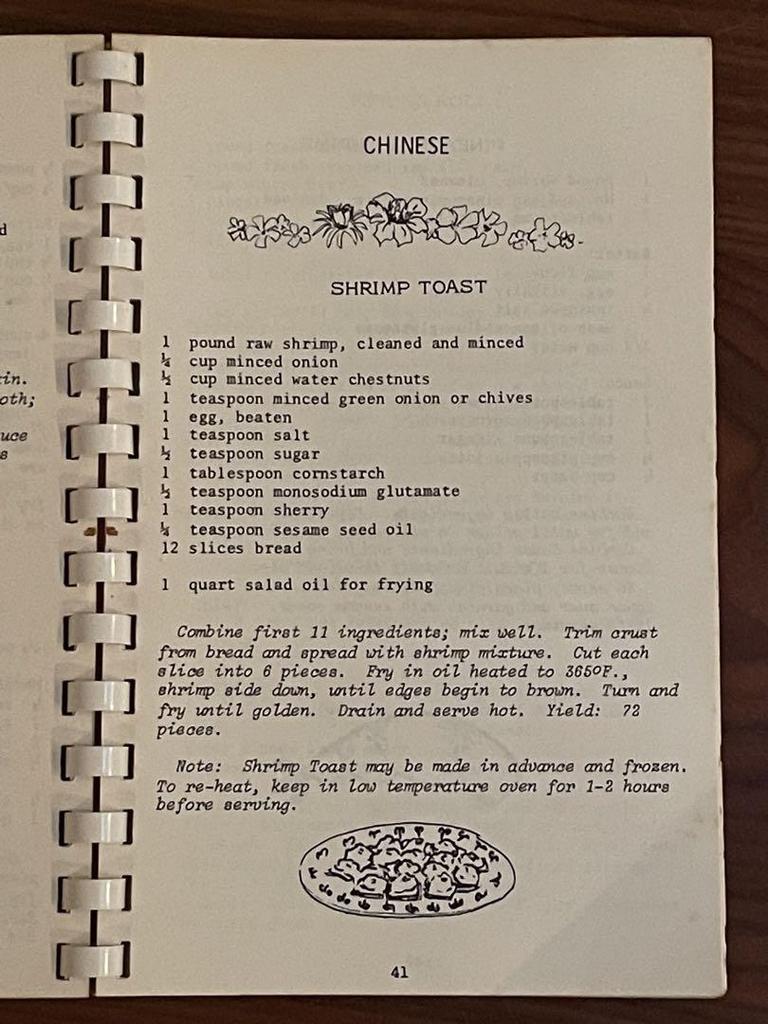 CHINESE
SHRIMP TOAST
1 pound raw shrimp, cleaned and minced
¼ cup minced onion
½ cup minced water chestnuts
1 teaspoon minced green onion or chives
1 egg, beaten
1 teaspoon salt
½ teaspoon sugar
1 tablespoon cornstarch
½ teaspoon monosodium glutamate
1 teaspoon sherry
¼ teaspoon sesame seed oil
12 slices bread
1 quart salad oil for frying
Combine first 11 ingredients; mix well. Trim crust
from bread and spread with shrimp mixture. Cut each
slice into 6 pieces. Fry in oil heated to 365ºF.,
shrimp side down, until edges begin to brown. Turn and
fry until golden. Drain and serve hot. Yield: 72
pieces.
Note: Shrimp Toast may be made in advance and frozen.
To re-heat, keep in low temperature oven for 1-2 hours
before serving.
41